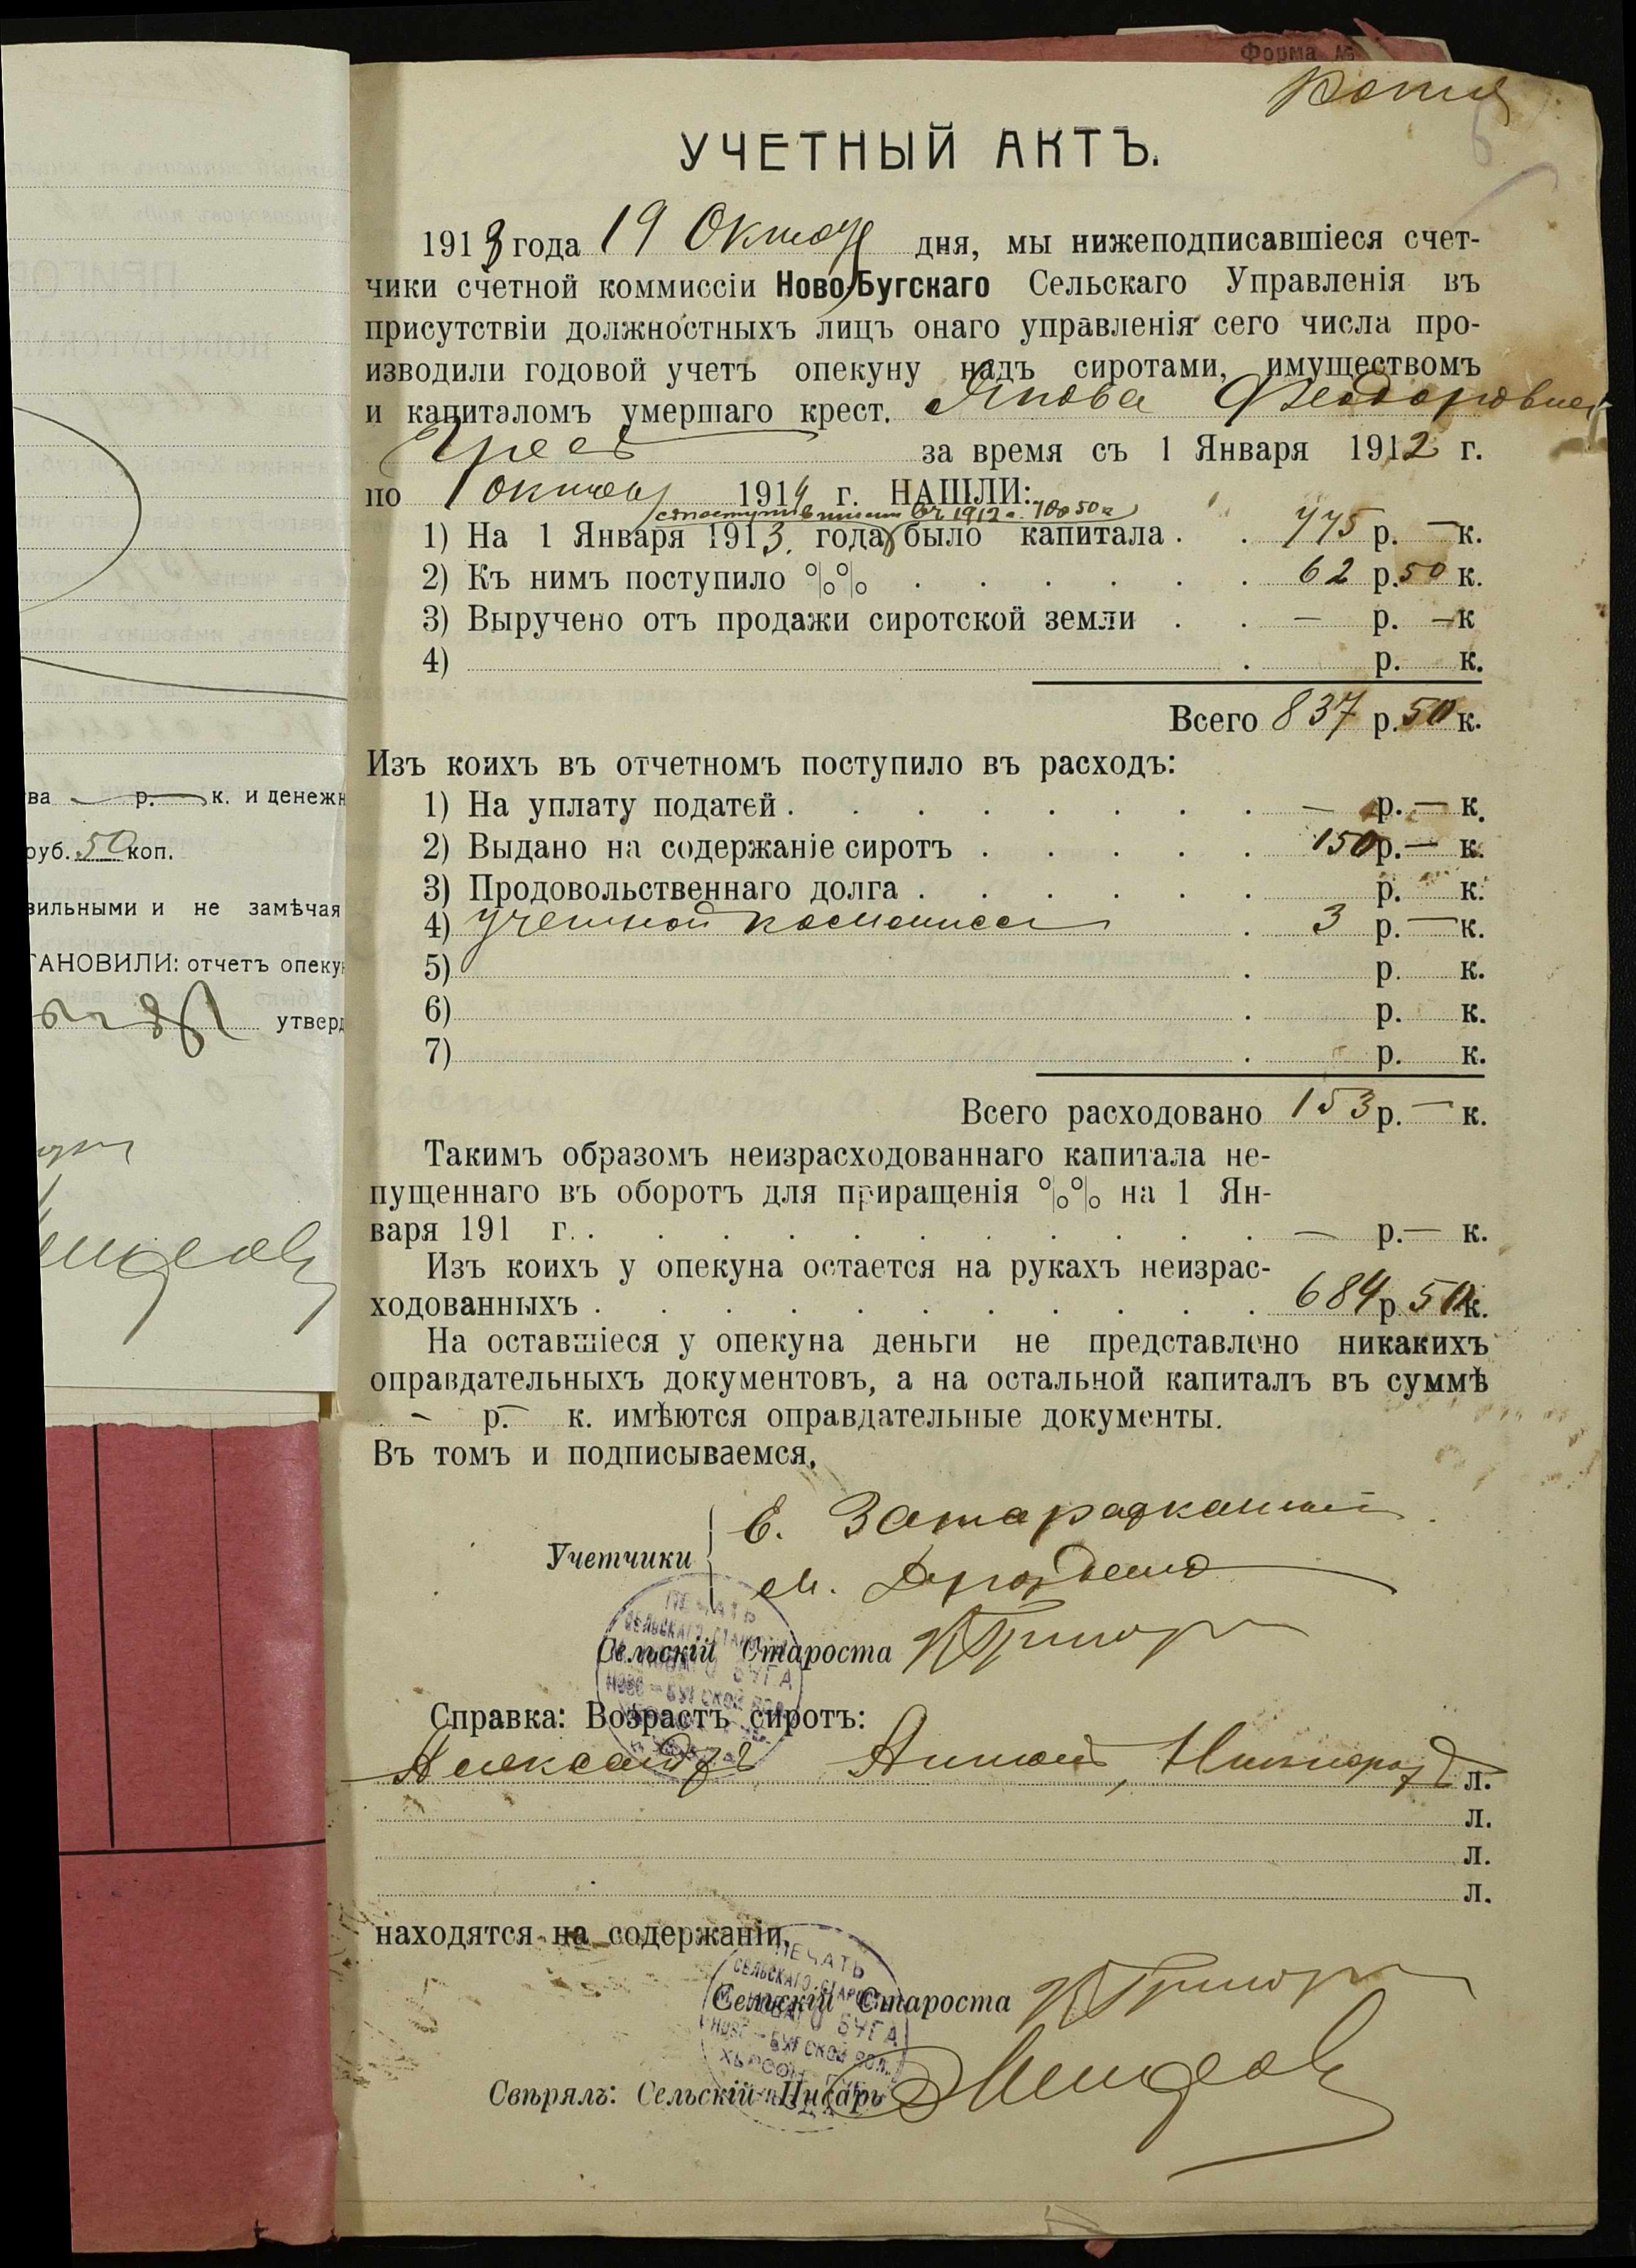 Форма
Копия
УЧЕТНЫЙ АКТЪ.
1913 года 19 Октбя дня, мы нижеподписавшіеся счет-
чики счетной коммиссіи Ново-Бугскаго Сельскаго Управленія въ
присутствіи должностныхъ лицъ онаго управленія сего числа про-
изводили годовой учетъ опекуну надъ сиротами, имуществомъ
и капиталомъ умершаго крест. Якова Феодоровича
за время съ 1 Января 1912 г.
по 1 октября 1914 г. НАШЛИ:
въ 1912 г. 70р 50к
1) На 1 Января 1913. года было капитала . . 775 р. — к.
2) Къ нимъ поступило %% . . . . . . 62 р. 50 к.
3) Выручено отъ продажи сиротской земли . . — р. — к
4) . р. к.
Всего 837 р. 50 к.
Изъ коихъ въ отчетномъ поступило въ расходъ:
1) На уплату податей . . . . . . . . — р. — к.
2) Выдано на содержаніе сиротъ . . . . . 150 р. — к.
3) Продовольственнаго долга . . . . . . р. к.
4) учетной комисіи . 3 р. — к.
5) . р. к.
6) . р. к.
7) . р. к.
Всего расходовано 153 р. — к.
Такимъ образомъ неизрасходованнаго капитала не-
пущеннаго въ оборотъ для приращенія %% на 1 Ян-
варя 191 г. . . . . . . . . . . . — р. — к.
Изъ коихъ у опекуна остается на рукахъ неизрас-
ходованныхъ . . . . . . . . . . . 684 р. 50 к.
На оставшіеся у опекуна деньги не представлено никакихъ
оправдательныхъ документовъ, а на остальной капиталъ въ суммѣ
- р. - к. имѣются оправдательные документы.
Въ томъ и подписываемся.
Учетчики
Е.
М.
Сельскій Староста
ПЕЧАТЬ
СЕЛЬСКАГО СТАРОСТЫ
НОВАГО БУГА
НОВО-БУГСКОЙ ВОЛ.
Справка: Возрастъ сиротъ:
Александръ, Антонъ, Никифоръ л.
л.
л.
л.
находятся на содержаніи.
Сельскій Староста
ПЕЧАТЬ
СЕЛЬСКАГО СТАРОСТЫ
НОВАГО БУГА
НОВО-БУГСКОЙ ВОЛ.
ХЕРСОН.
Свѣрялъ: Сельскій Писарь
ва — р. — к. и денежн
руб. 50 коп.
вильными и не замѣчая
ТАНОВИЛИ: отчетъ опеку
утверд